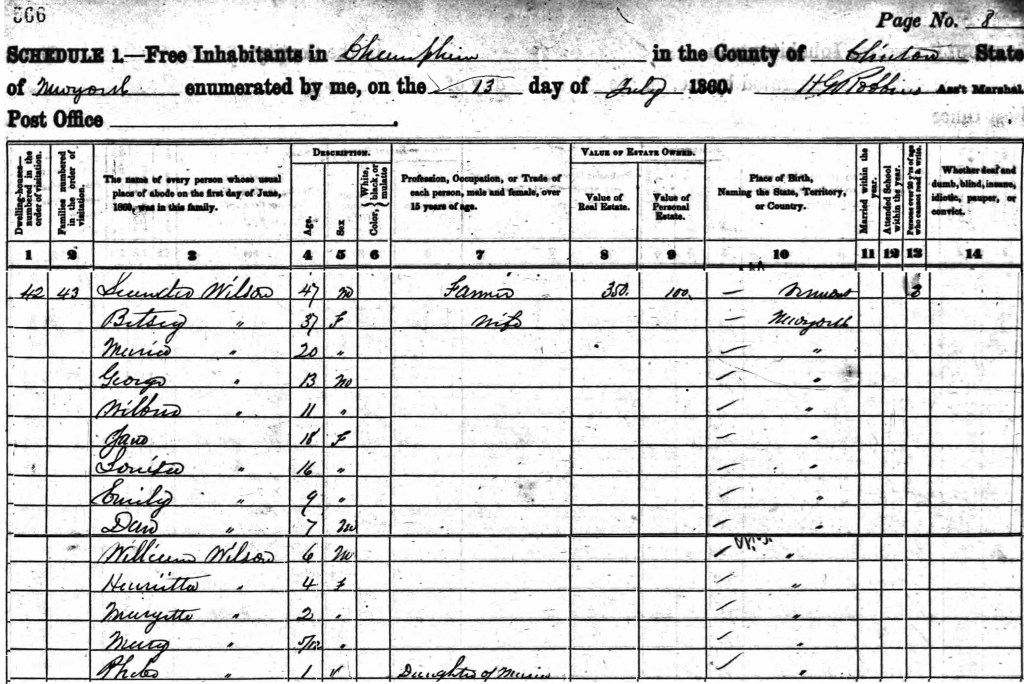 566
Page No. 8
SCHEDULE 1.—Free Inhabitants in Champlain in the County of Clinton State
of Newyork enumerated by me, on the 13 day of July 1860. H G Robbins Ass't Marshal.
Post Office .
Dwelling-houses—numbered in the order of visitation.
Families numbered in the order of visitation.
The name of every person whose usual place of abode on the first day of June, 1860, was in this family.
DESCRIPTION.
Age.
Sex
Color, { White, black, or mulatto
Profession, Occupation, or Trade of each person, male and female, over 15 years of age.
VALUE OF ESTATE OWNED.
Value of Real Estate.
Value of Personal Estate.
Place of Birth, Naming the State, Territory, or Country.
Married within the year.
Attended School within the year.
Persons over 20 y'rs of age who cannot read & write.
Whether deaf and dumb, blind, insane, idiotic, pauper, or convict.
1 2 3 4 5 6 7 8 9 10 11 12 13 14
42 43 Leander Wilson 47 m Farmer 350. 100. — Vermont
Betsey " 37 F Wife — Newyork
Maria " 20 " "
George " 13 m "
Wilbur " 11 " "
Jane 18 F "
Louisa " 16 " "
Emily " 9 " "
Dan " 7 m "
William Wilson 6 m "
Henrietta " 4 F "
Maryette " 2 " "
Mary " 5/12 " "
Phebe " 1 " Daughter of Maria "